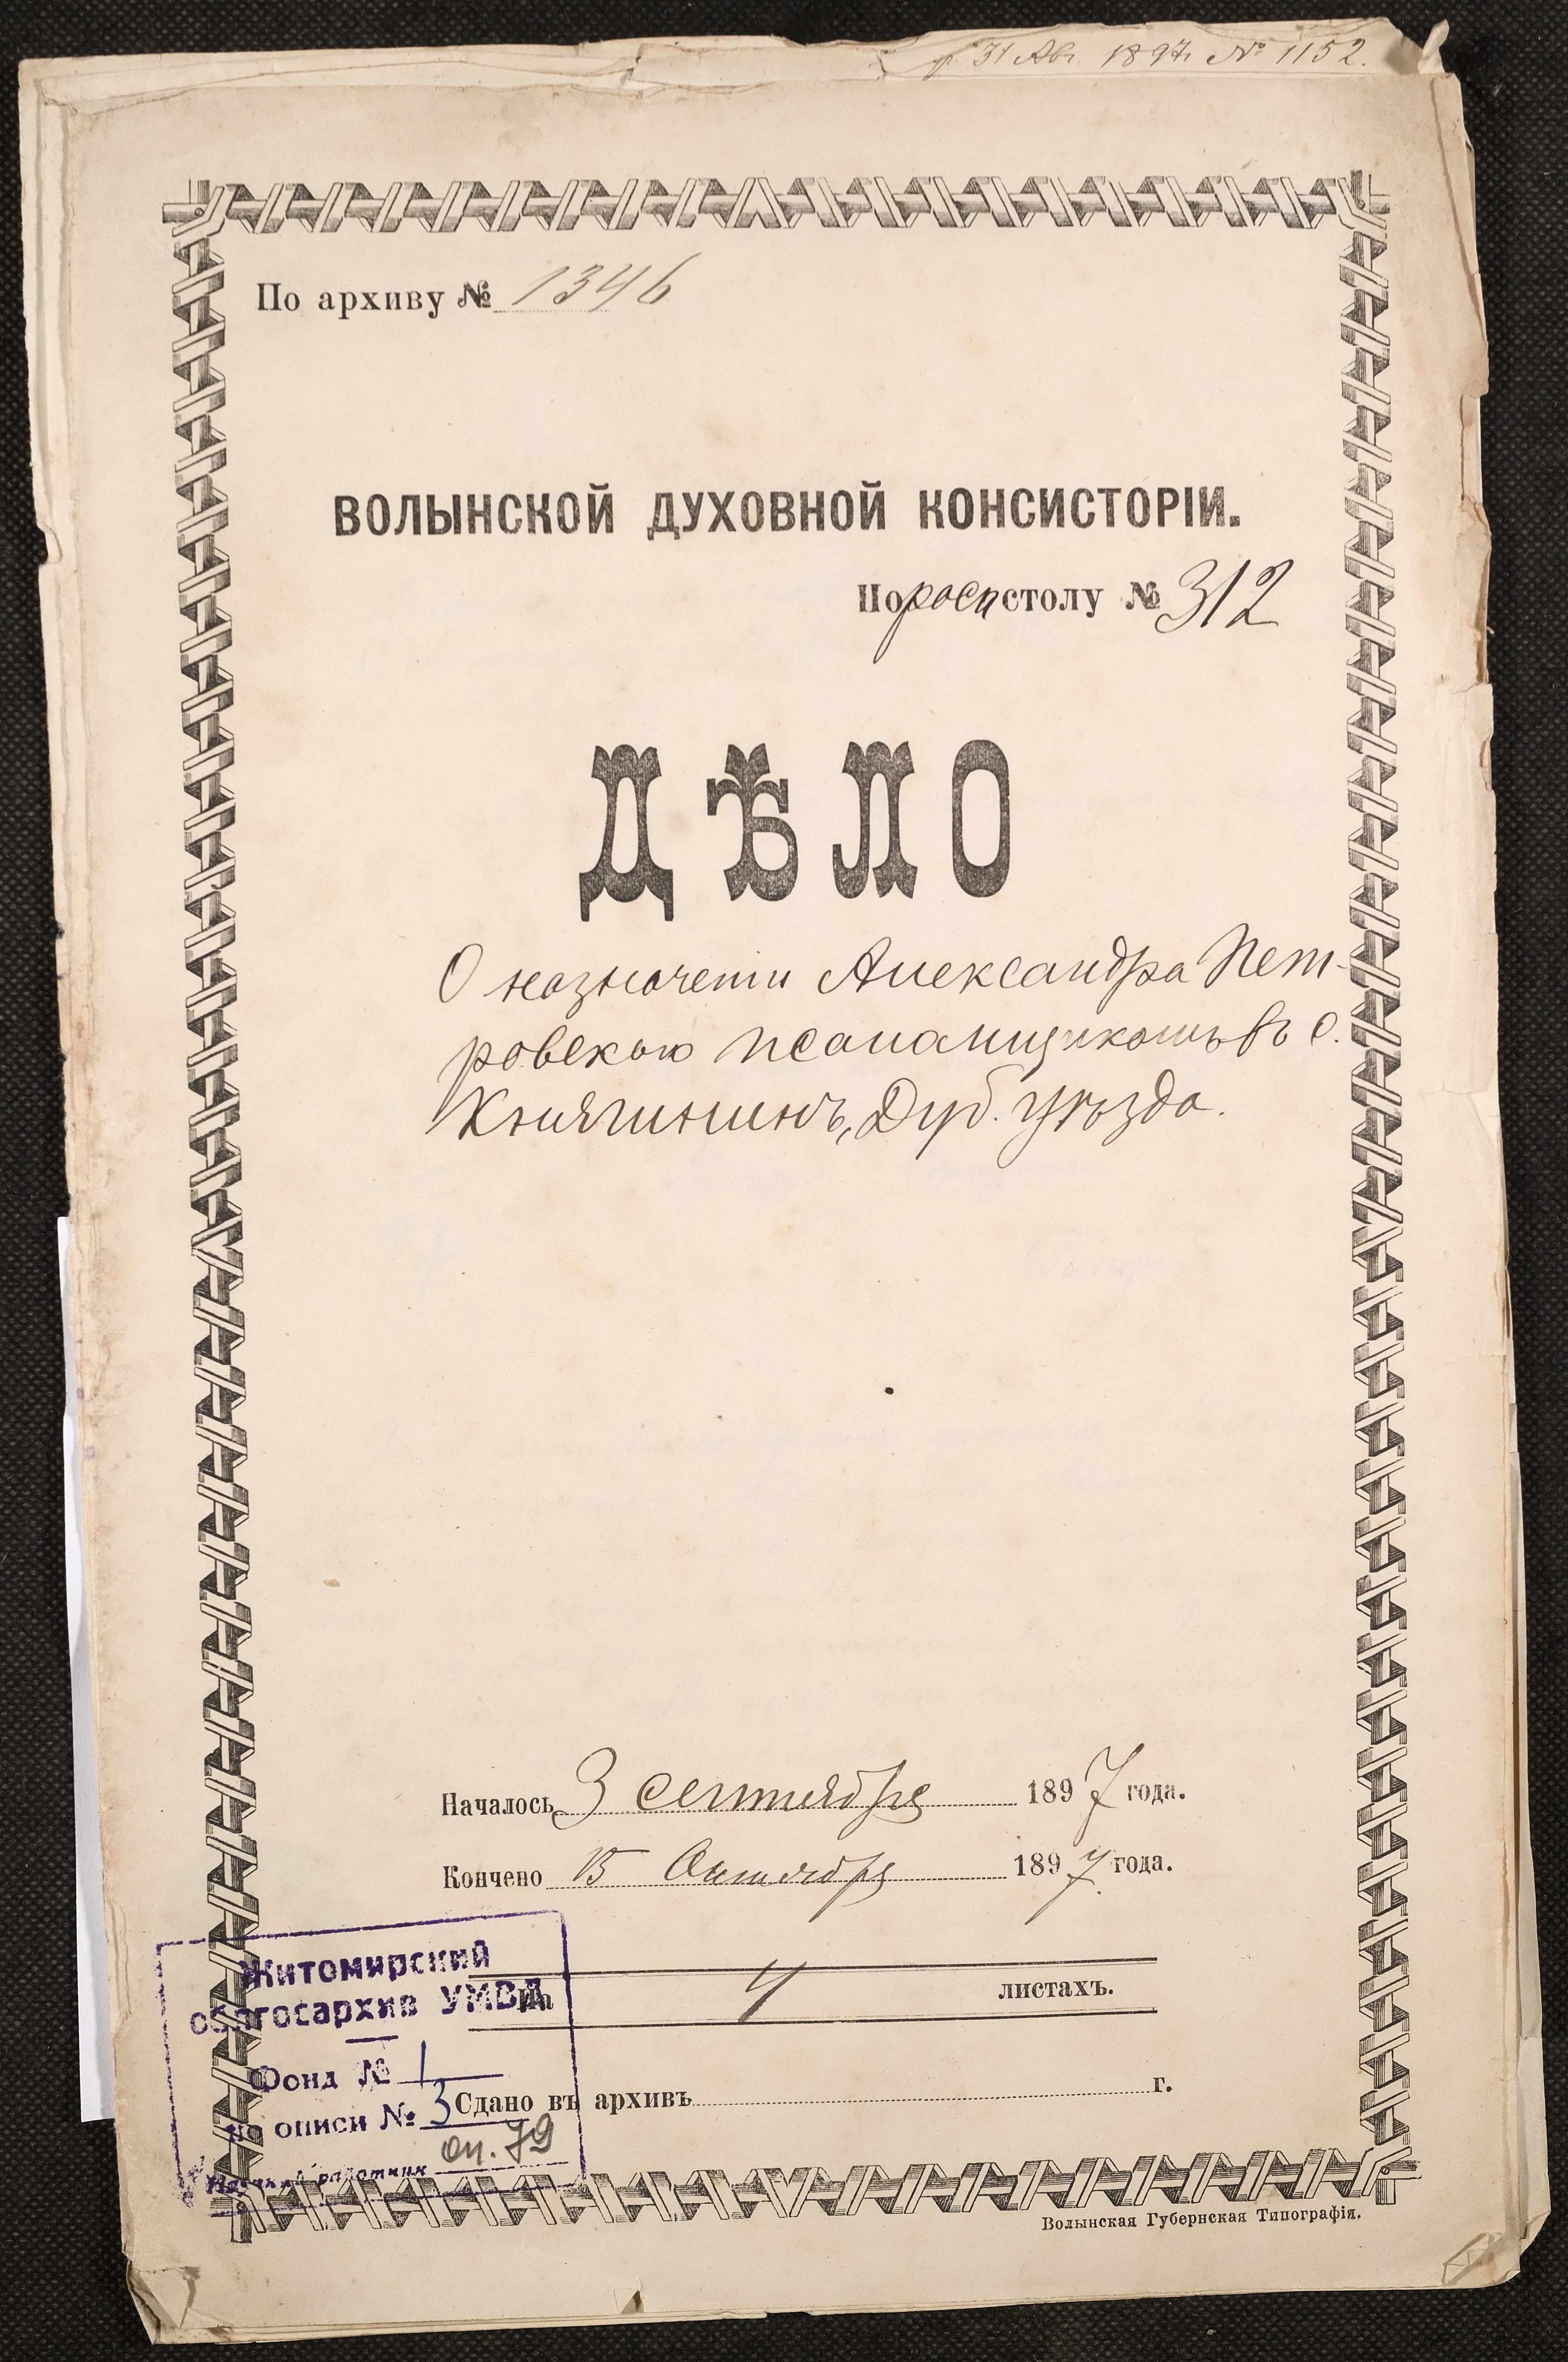 31 Авг. 1897 г. № 1152.
По архиву № 1346
ВОЛЫНСКОЙ ДУХОВНОЙ КОНСИСТОРІИ.
По расп столу № 312
ДѢЛО
О назначеніи Александра Пет-
ровскаго псаломщикомъ въ с.
Княгининъ, Дуб. уѣзда.
Началось 3 сентября 1897 года.
Кончено 15 Октября 1897 года.
На 4 листахъ.
Сдано въ архивъ г.
Житомирский
облгосархив УМВД
Фонд № 1
по описи № 3
оп. 79
Научный работник
Волынская Губернская Типографія.